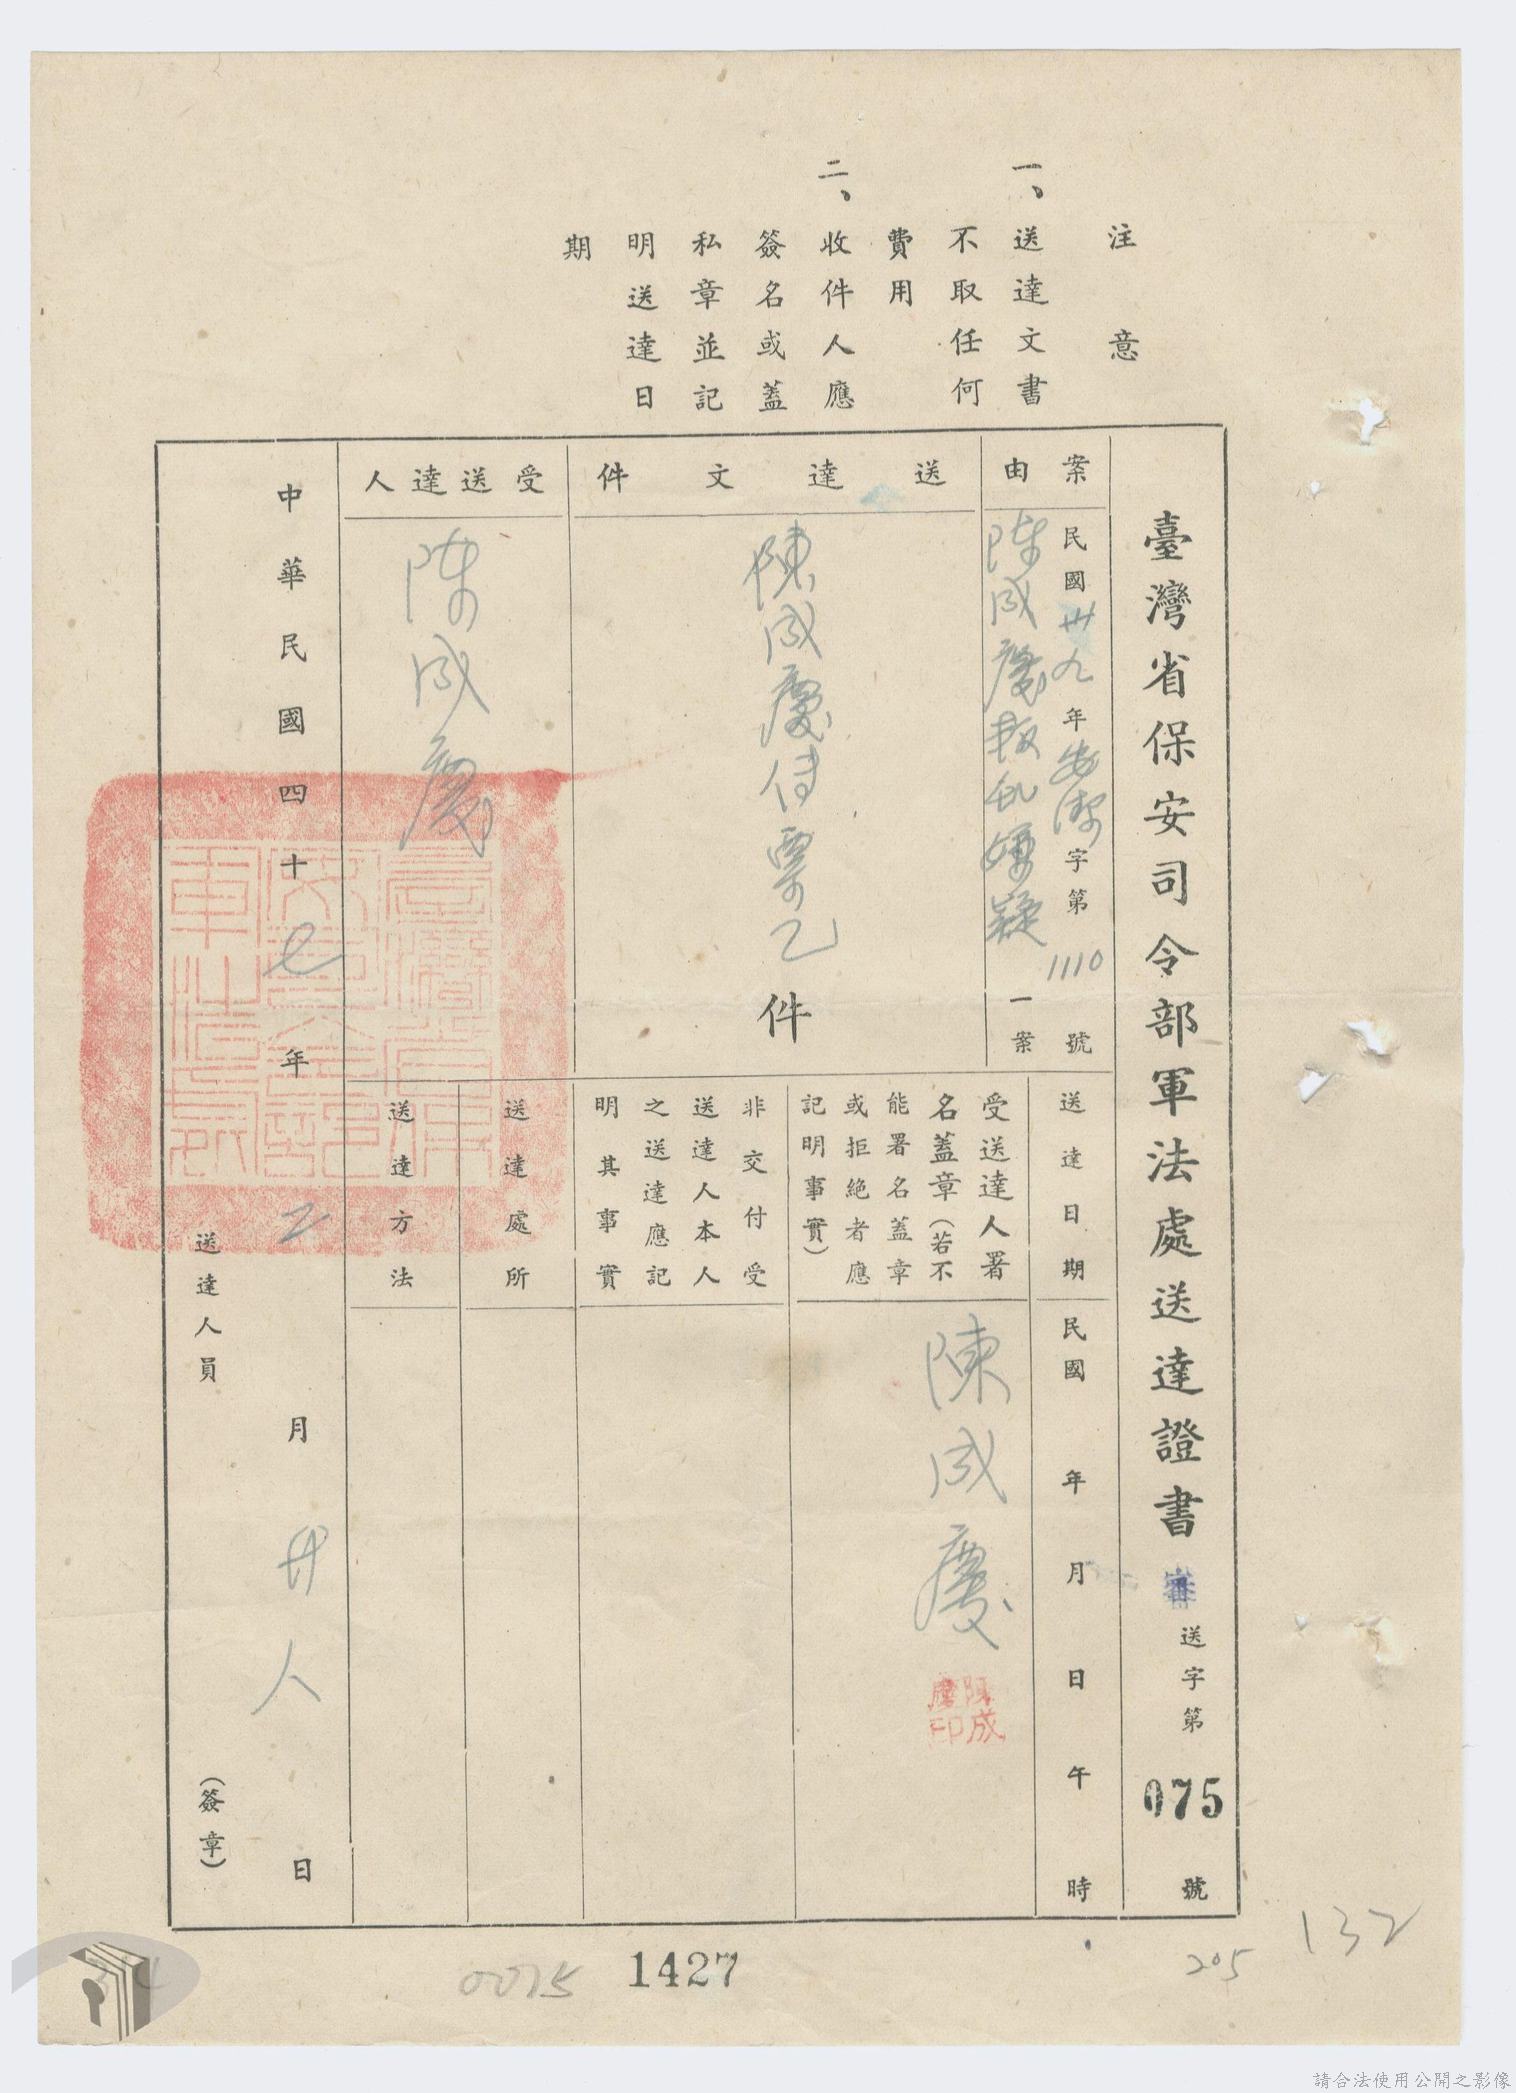 注意
一、送達文書
不取任何
費用
二、收件人應
簽名或蓋
私章並記
明送達日
期
臺灣省保安司令部軍法處送達證書 審 送字第 075 號
案由
民國卅九年安潔字第1110號
陳成慶叛亂嫌疑一案
送達文件
陳成慶傳票乙件
受送達人
陳成慶
送達日期
民國 年 月 日 午 時
受送達人署
名蓋章（若不
能署名蓋章
或拒絕者應
記明事實）
陳成慶
陳成
慶印
非交付受
送達人本人
之送達應記
明其事實
送達處所
送達方法
中華民國四十七年二月廿八日
送達人員 （簽章）
1427
0075
205
132
請合法使用公開之影像